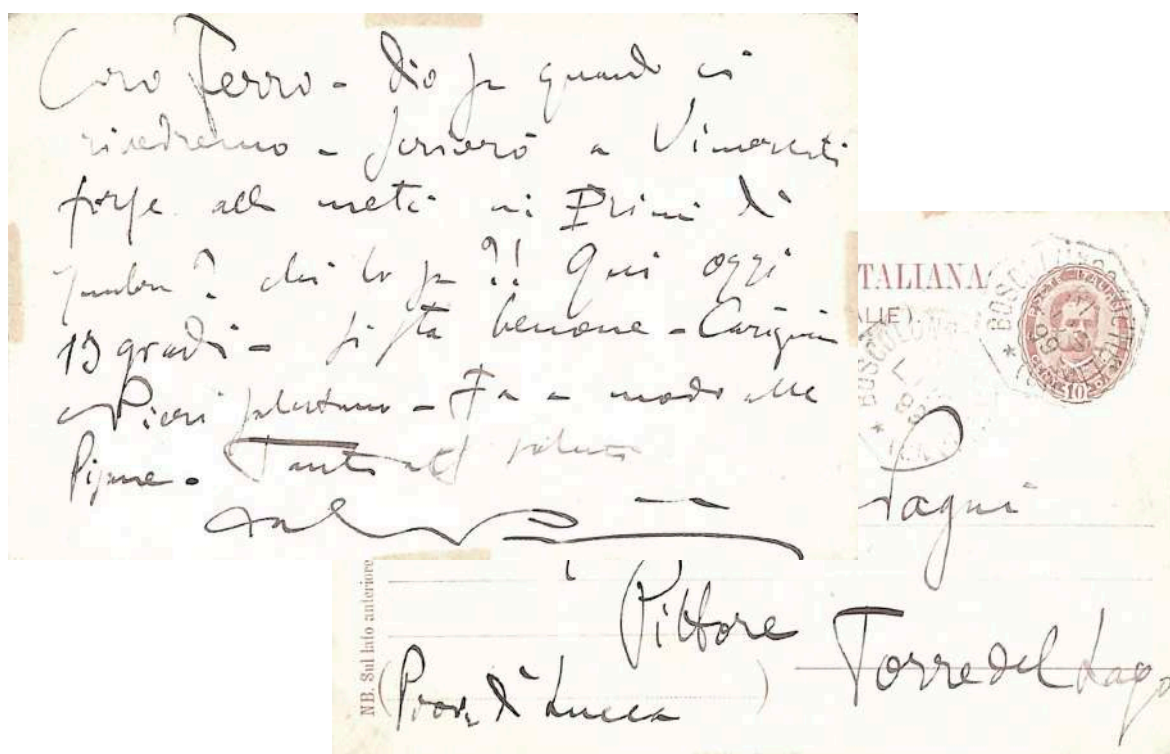 Caro Ferro - Dio sa quando ci
rivedremo - scriverò a
forse alla metà ai Primi di
? chi lo sa ?! Qui oggi
19 gradi - si sta benone - Carignani
e Pieri salutano - Fa a modo alle
Pisane - Tanti saluti
TALIANA
ALIE)
BOSCOLUNGO
10
Pagni
Pittore
Torre del Lago
(Prov. di Lucca)
NB. Sul lato anteriore